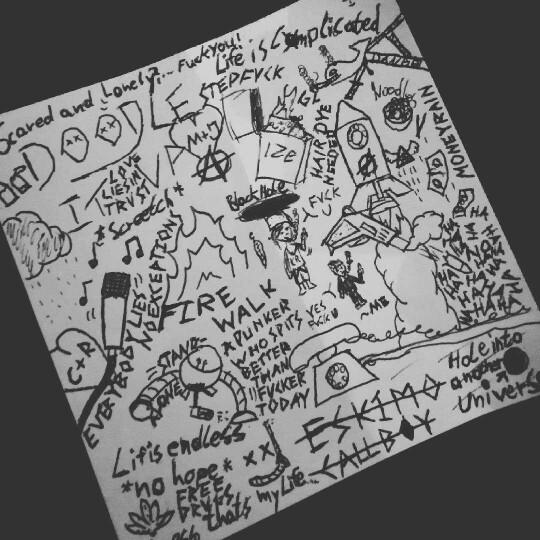 Scared and Lonely?...
Fuck you!!
Life is Complicated
LET
STEPFVCK
M+J
A
IZE
HAIR DYE
NEEDED
Noodles
MONEYRAIN
LOVE
LIES IN
TRUST
*Screech*
Black Hole
FVCK
U
FIRE
WALK
EVERYBODY LIES
NO EXCEPTIONS
C x R
STAND
ALONE
A PUNKER
WHO SPITS
BETTER
THAN
U FUCKER
TODAY
YES
FVCK U
~MB
HA
HA
HA
HA
Hole into
another
Universe
ESKIMO
CALLBOY
Lif is endless
*no hope*
FREE
DRUGS
XX
that's
my Life...